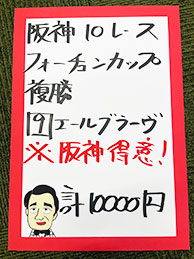 阪神10レース
フォーチュンカップ
複勝
9 エールブラーヴ
※阪神得意!
計10000円